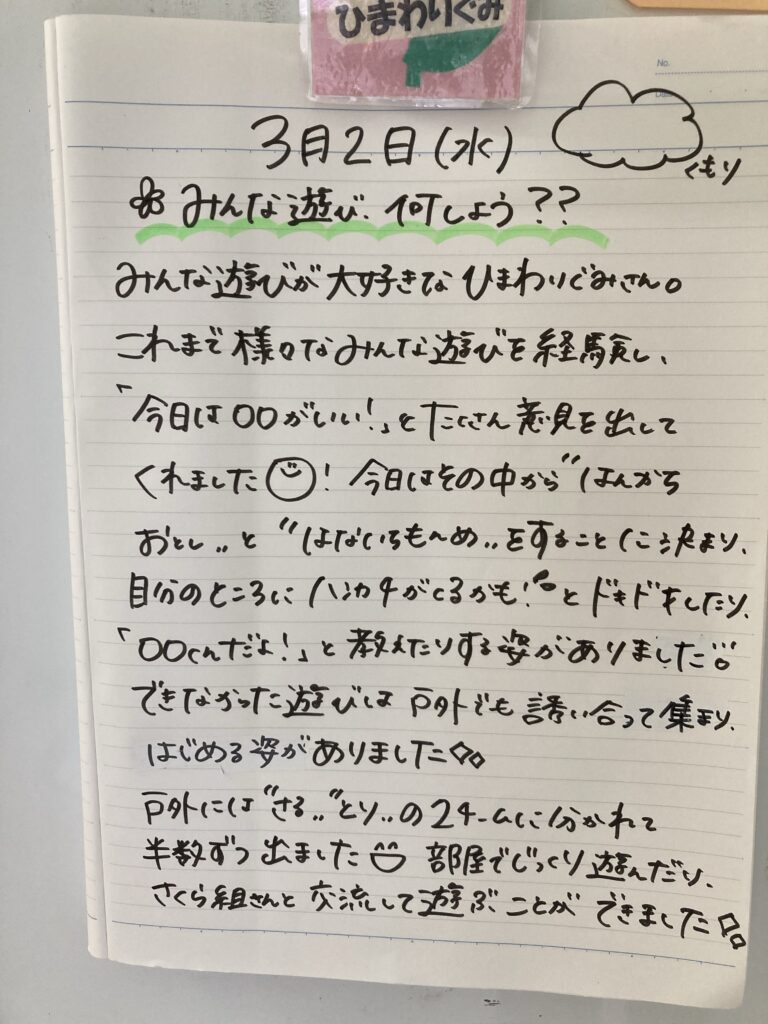 ひまわりぐみ
No.
3月2日(水)
くもり
みんな遊び、何しよう??
みんな遊びが大好きなひまわりぐみさん。
これまで様々なみんな遊びを経験し、
「今日は〇〇がいい!」とたくさん意見を出して
くれました! 今日はその中から"はんかち
おとし"と"はないちも〜め"をすることに決まり、
自分のところにハンカチがくるかも!とドキドキしたり、
「〇〇くんだよ!」と教えたりする姿がありました。
できなかった遊びは戸外でも誘い合って集まり、
はじめる姿がありました
戸外には"さる""とり"の2チームに分かれて
半数ずつ出ました 部屋でじっくり遊んだり、
さくら組さんと交流して遊ぶことができました